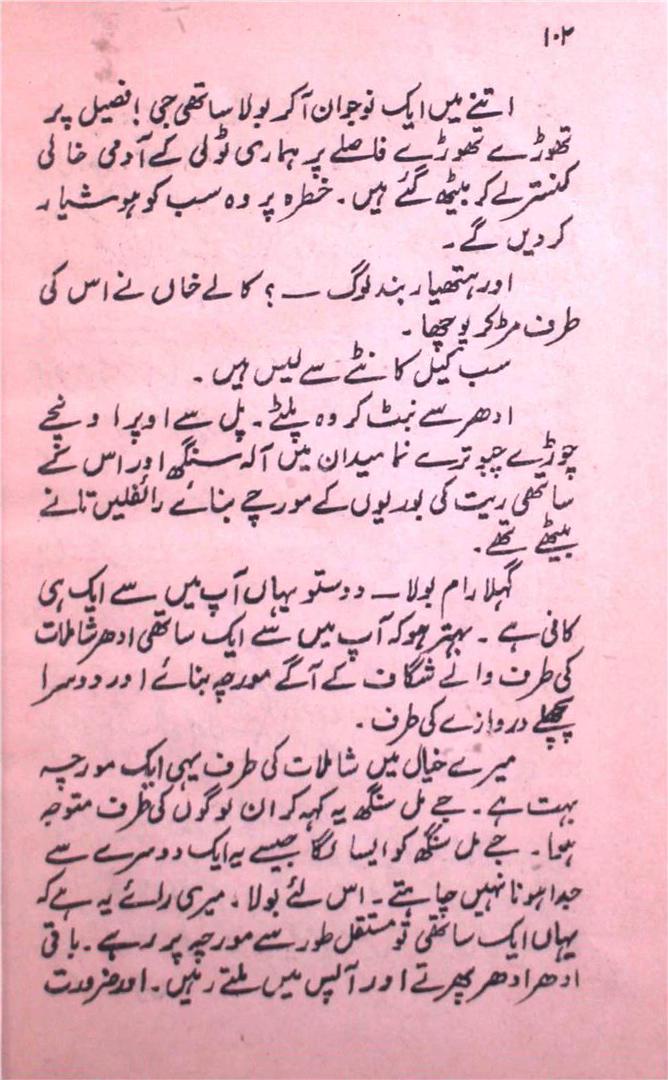 ۱۰۲
اتنے میں ایک نوجوان آکر بولا ساتھی جی! فصیل پر
تھوڑے تھوڑے فاصلے پر ہماری ٹولی کے آدمی خالی
کنستر لے کر بیٹھ گئے ہیں۔ خطرہ پر وہ سب کو ہوشیار
کر دیں گے۔
اور ہتھیار بند لوگ — ؟ کالے خاں نے اس کی
طرف مڑ کر پوچھا۔
سب کیل کانٹے سے لیس ہیں۔
ادھر سے نبٹ کر وہ پلٹے۔ پل سے اوپر اونچے
چوڑے چبوترے نما میدان میں آلہ سنگھ اور اس کے
ساتھی ریت کی بوریوں کے مورچے بنائے رائفلیں تانے
بیٹھے تھے۔
گہلا رام بولا — دوستو یہاں آپ میں سے ایک ہی
کافی ہے۔ بہتر ہو کہ آپ میں سے ایک ساتھی ادھر شاملات
کی طرف والے شگاف کے آگے مورچہ بنائے اور دوسرا
پچھلے دروازے کی طرف۔
میرے خیال میں شاملات کی طرف یہی ایک مورچہ
بہت ہے۔ جے مل سنگھ یہ کہہ کر ان لوگوں کی طرف متوجہ
ہوا۔ جے مل سنگھ کو ایسا لگا جیسے یہ ایک دوسرے سے
جدا ہونا نہیں چاہتے۔ اس لئے بولا، میری رائے یہ ہے کہ
یہاں ایک ساتھی تو مستقل طور سے مورچہ پر رہے۔ باقی
ادھر ادھر پھرتے اور آپس میں ملتے رہیں۔ اور ضرورت